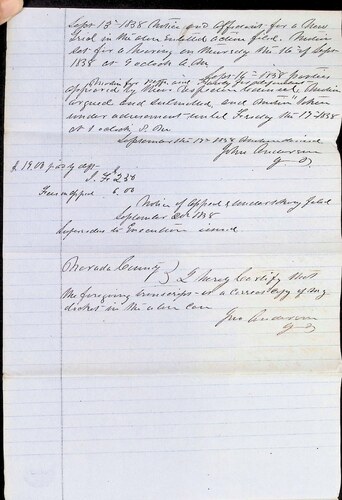 Sept 13th 1858 Notice and Affidavit for a New
Trial in the above Entitled Action filed. Motion
Set for a hearing on Thursday the 16th of Sept
1858 at 9 oclock A.M.
Motion for and Sept 16th 1858 parties
appeared by their respective Counsel, Motion
argued and Submitted, and Motion taken
under advisement until Friday the 17th 1858
at 1 oclock P.M.
September 18th 1858 Motion
John Anderson
J P
$19.00 paid by
J. F. 2.50
Fees on appeal 6.00
Notice of Appeal & undertaking filed
September 20th 1858
Supersedes to Execution issued
Nevada County } I hereby Certify that
the foregoing transcript is a correct copy of my
docket in the above Case
Jno Anderson
J P